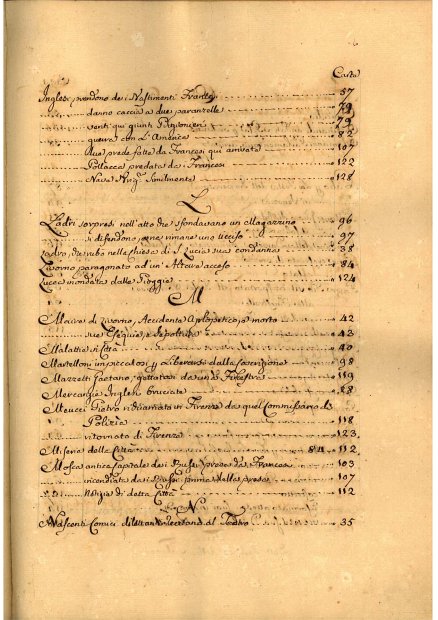 Carta
Inglesi prendono dei Bastimenti Francesi 57
danno caccia a due paranzelle 79
venti qui giunti Prigionieri 79
guerra con L'America 82
due prede fatte da Francesi qui arrivate 107
Pollacca predata da Francesi 122
Nave similmente 128
L
Ladri sorpresi nell'atto che sfondavano un Magazzino 96
si difendono, e ne rimane uno ucciso 97
Ladro, che rubò nella Chiesa di S. Lucia sua condanna 38
Livorno paragonato ad un' Alveare 84
Lucca inondata dalle Pioggie 124
M
Maire di Livorno, Accidente Apopletico, e morto 42
sue Esequie, e sepoltura 43
Malattie in Città 40
Martelloni impiccatosi p liberarsi dalla Coscrizione 98
Mazzetti Gaetano gettatosi da una Finestra 119
Mercanzie Inglesi bruciate 28
Meucci Pietro richiamato in Firenze da quel Commissario di
Polizia 118
ritornato di Firenze 123
Miseria della Città 84 112
Mosca antica Capitale dei Russi presa da Francesi 103
incendiata dai Russi prima della presa 107
Notizie di detta Città 112
N
Nascenti Comici dilettanti recitano al Teatro 35